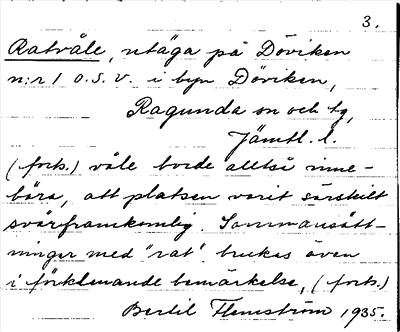 3.
Ratvåle, utäga på Döviken
n:r 1 o.s.v. i byn Döviken,
Ragunda sn och tg,
Jämtl. l.
(forts.) våle borde alltså inne-
bära, att platsen varit särskilt
svårframkomlig. Sammansätt-
ningar med "rat" brukas även
i förklenande bemärkelse, (forts.)
Bertil Flemström 1935.